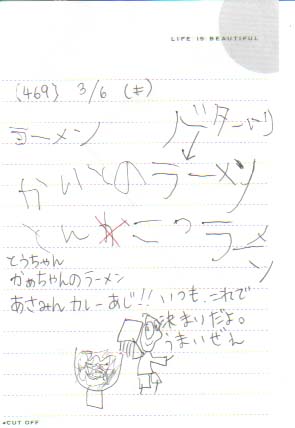 LIFE IS BEAUTIFUL
(469) 3/6 (土)
ラーメン バターいり
かいとのラーメン
とんこつラーメン
とうちゃん
かめちゃんのラーメン
あさみんカレーあじ!!いつも、これで
決まりだよ。
うまいぜえ
CUT OFF